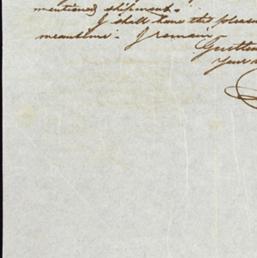 mentioned shipment.
I shall have the pleasu
meantime. I remain
Gentlem
Your